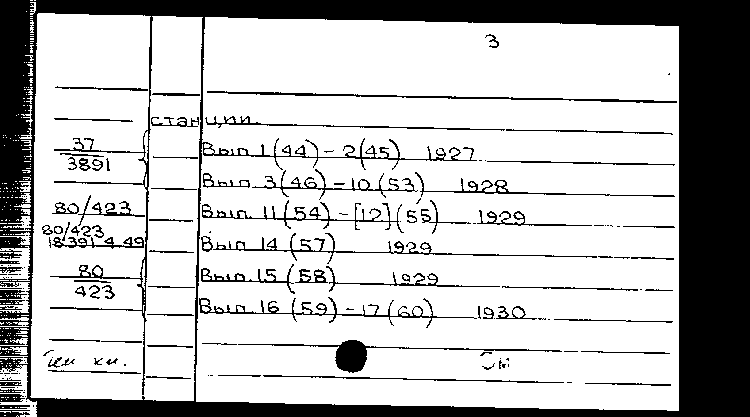 3
станции.
37/3891 Вып. 1(44) – 2(45) 1927
Вып. 3(46) – 10(53) 1928
80/423 Вып. 11(54) – [12](55) 1929
80/423
18391 4.49 Вып. 14(57) 1929
80/423 Вып. 15(58) 1929
Вып. 16(59) – 17(60) 1930
кн.